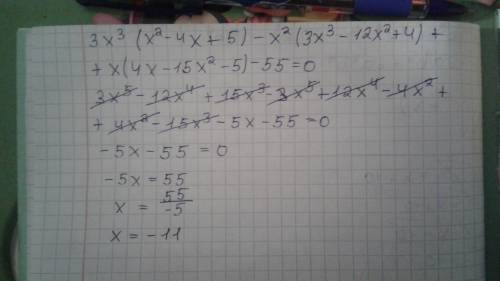 3x³ (x²-4x+5) - x² (3x³-12x²+4) +
+ x(4x-15x²-5)-55=0
3x⁵ - 12x⁴ + 15x³ - 3x⁵ + 12x⁴ - 4x² +
+ 4x² - 15x³ - 5x - 55 = 0
-5x - 55 = 0
-5x = 55
x = 55/-5
x = -11